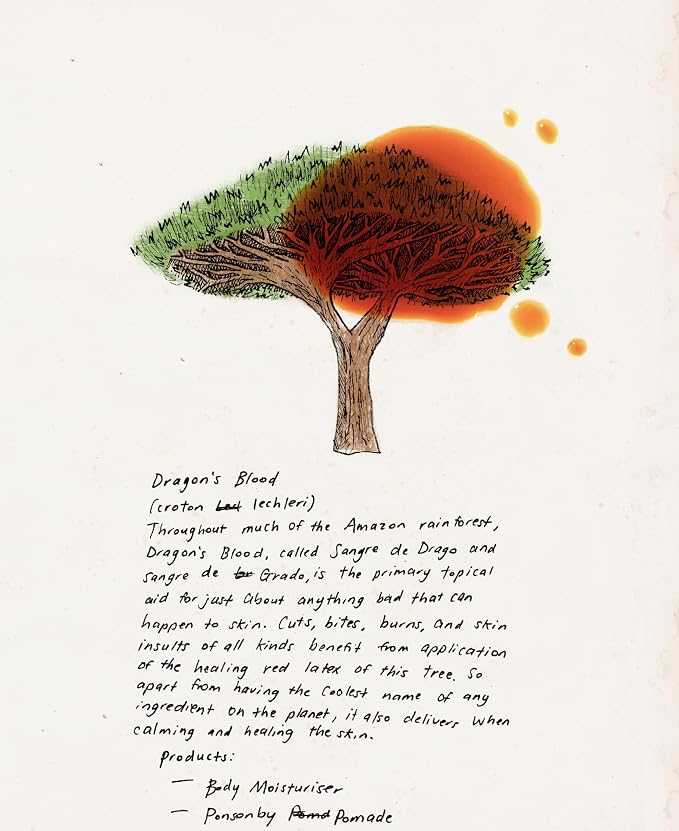 Dragon's Blood
(croton lechleri)
Throughout much of the Amazon rainforest,
Dragon's Blood, called Sangre de Drago and
sangre de Grado, is the primary topical
aid for just about anything bad that can
happen to skin. Cuts, bites, burns, and skin
insults of all kinds benefit from application
of the healing red latex of this tree. So
apart from having the coolest name of any
ingredient on the planet, it also delivers when
calming and healing the skin.
products:
— Body Moisturiser
— Ponsonby Pomade